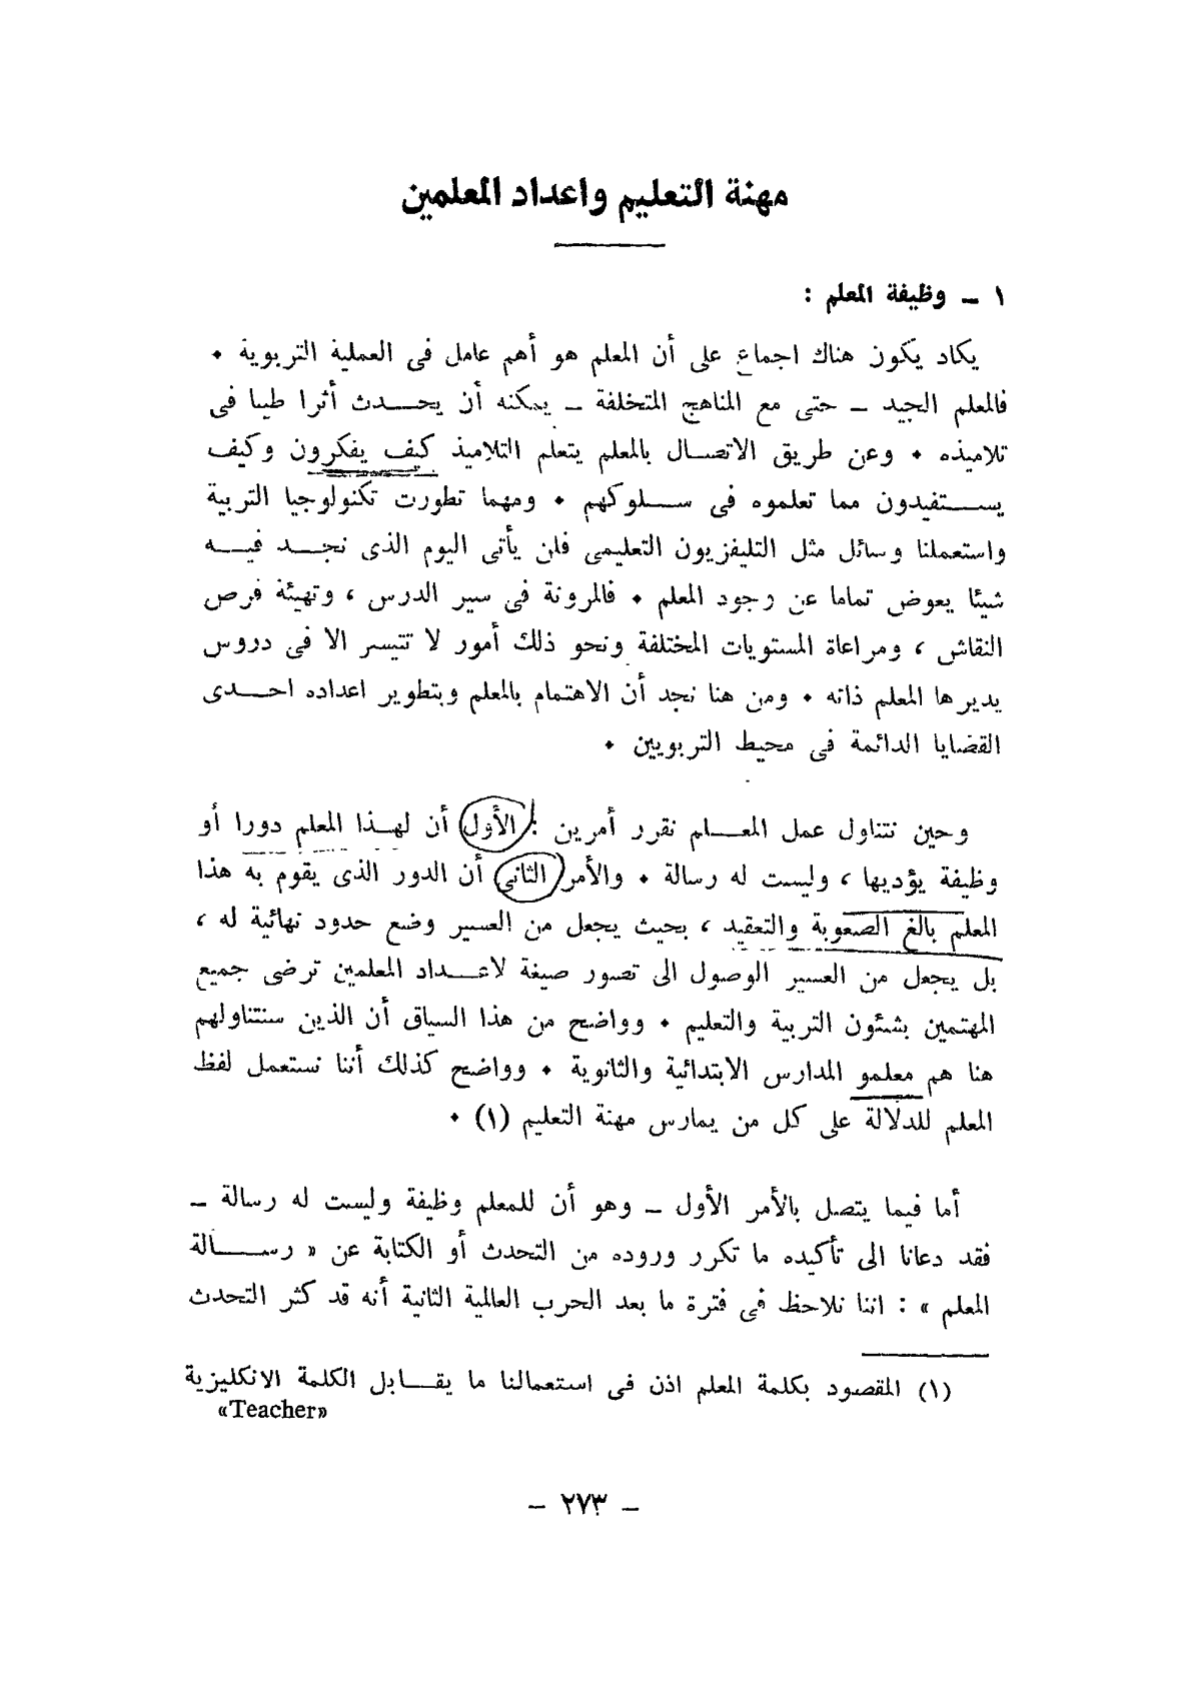 مهنة التعليم واعداد المعلمين
١ ـ وظيفة المعلم :
يكاد يكون هناك اجماع على أن المعلم هو أهم عامل فى العملية التربوية ٠
فالمعلم الجيد ـ حتى مع المناهج المتخلفة ـ يمكنه أن يحـدث أثرا طيبا فى
تلاميذه ٠ وعن طريق الاتصـال بالمعلم يتعلم التلاميذ كيف يفكرون وكيف
يسـتفيدون مما تعلموه فى سـلوكهم ٠ ومهما تطورت تكنولوجيا التربية
واستعملنا وسائل مثل التليفزيون التعليمى فلن يأتى اليوم الذى نجـد فيـه
شيئا يعوض تماما عن وجود المعلم ٠ فالمرونة فى سير الدرس ، وتهيئة فرص
النقاش ، ومراعاة المستويات المختلفة ونحو ذلك أمور لا تتيسر الا فى دروس
يديرها المعلم ذاته ٠ ومن هنا نجد أن الاهتمام بالمعلم وبتطوير اعداده احـدى
القضايا الدائمة فى محيط التربويين ٠
وحين نتناول عمل المعـلم نقرر أمرين : الأول أن لهـذا المعلم دورا أو
وظيفة يؤديها ، وليست له رسالة ٠ والأمر الثانى أن الدور الذى يقوم به هذا
المعلم بالغ الصعوبة والتعقيد ، بحيث يجعل من العسير وضع حدود نهائية له ،
بل يجعل من العسير الوصول الى تصور صيغة لاعـداد المعلمين ترضى جميع
المهتمين بشئون التربية والتعليم ٠ وواضح من هذا السياق أن الذين سنتناولهم
هنا هم معلمو المدارس الابتدائية والثانوية ٠ وواضح كذلك أننا نستعمل لفظ
المعلم للدلالة على كل من يمارس مهنة التعليم (١) ٠
أما فيما يتصل بالأمر الأول ـ وهو أن للمعلم وظيفة وليست له رسالة ـ
فقد دعانا الى تأكيده ما تكرر وروده من التحدث أو الكتابة عن « رسـالة
المعلم » : اننا نلاحظ فى فترة ما بعد الحرب العالمية الثانية أنه قد كثر التحدث
(١) المقصود بكلمة المعلم اذن فى استعمالنا ما يقـابل الكلمة الانكليزية
«Teacher»
ـ ٢٧٣ ـ